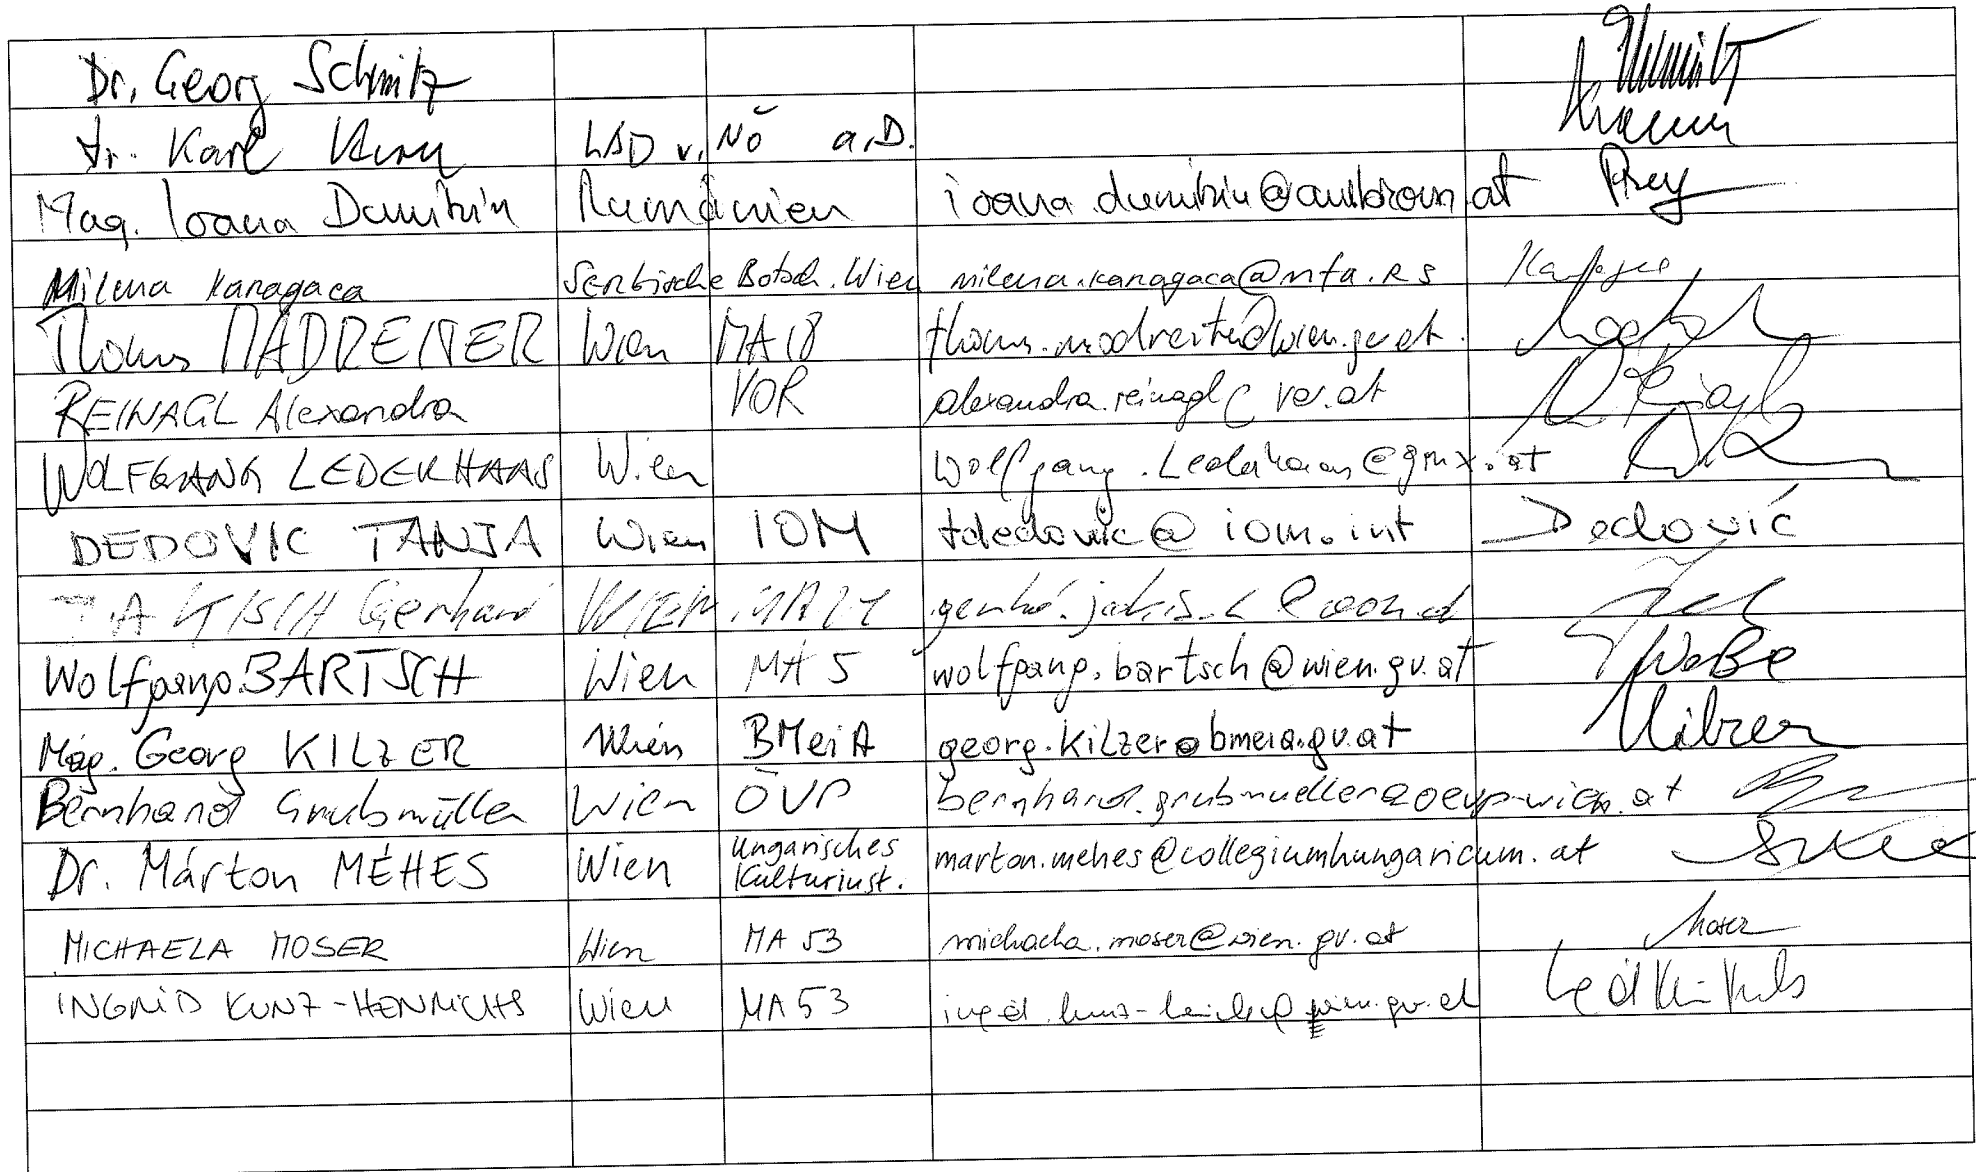 Dr. Georg Schmitz
Dr. Karl LAD v. NÖ a.D.
Mag. Ioana Dumitriu Rumänien ioana.dumitriu@ambrom.at
Milena Karagaca Serbische Botsch. Wien milena.karagaca@mfa.rs
Thomas MADREITER Wien MA 18 thomas.madreiter@wien.gv.at
REINAGL Alexandra VOR alexandra.reinagl@vor.at
WOLFGANG LEDERHAAS Wien wolfgang.Lederhaas@gmx.at
DEDOVIC TANJA Wien IOM tdedovic@iom.int Dedović
JAKISCH Gerhard WIEN
Wolfgang BARTSCH Wien MA 5 wolfgang.bartsch@wien.gv.at
Mag. Georg KILZER Wien BMeiA georg.kilzer@bmeia.gv.at Kilzer
Bernhard Grubmüller Wien ÖVP bernhard.grubmueller@oevp-wien.at
Dr. Márton MÉHES Wien Ungarisches Kulturinst. marton.mehes@collegiumhungaricum.at
MICHAELA MOSER Wien MA 53 michaela.moser@wien.gv.at Moser
INGRID KUNZ-HENRICHS Wien MA 53